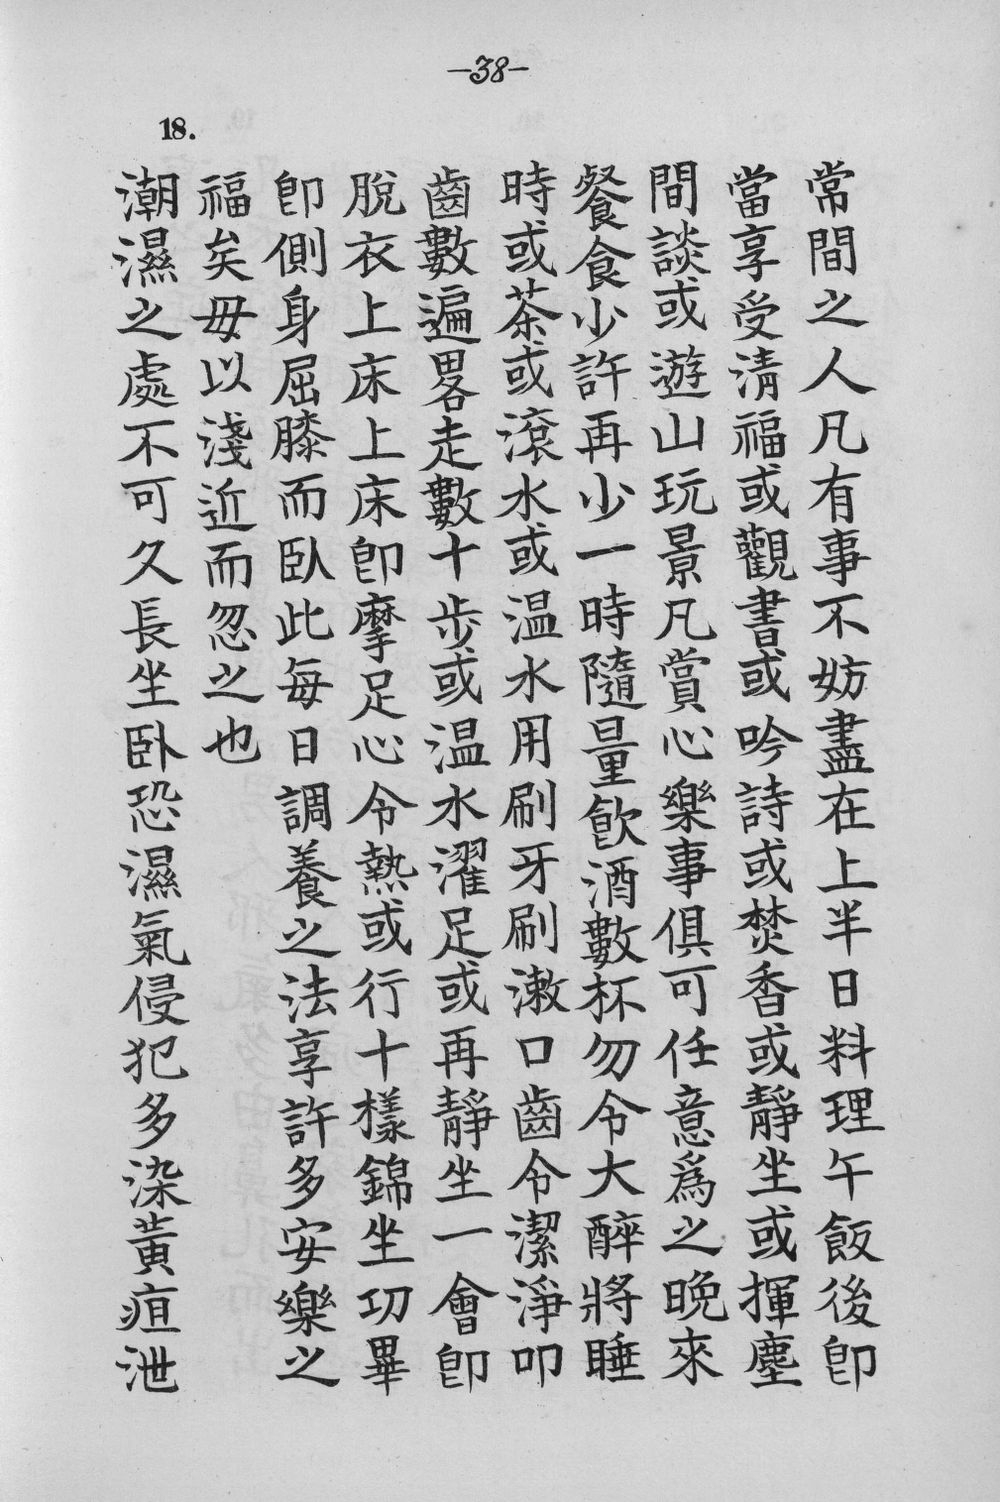 -38-
18.
常間之人凡有事不妨盡在上半日料理午飯後卽
當享受清福或觀書或吟詩或焚香或靜坐或揮塵
間談或遊山玩景凡賞心樂事俱可任意爲之晚來
餐食少許再少一時隨量飮酒數杯勿令大醉將睡
時或茶或滾水或温水用刷牙刷漱口齒令潔淨叩
齒數遍畧走數十步或温水濯足或再靜坐一會卽
脫衣上床上床卽摩足心令熱或行十樣錦坐功畢
卽側身屈膝而臥此每日調養之法享許多安樂之
福矣毋以淺近而忽之也
潮濕之處不可久長坐卧恐濕氣侵犯多染黃疸泄